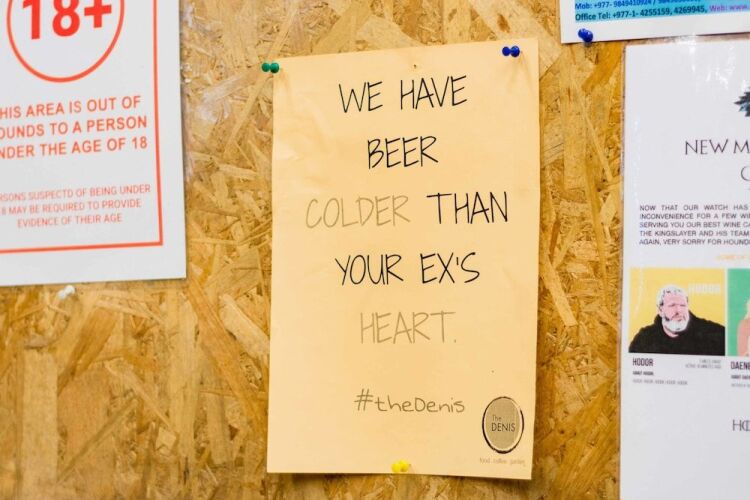 18+
HIS AREA IS OUT OF
OUNDS TO A PERSON
NDER THE AGE OF 18
RSONS SUSPECTD OF BEING UNDER
8 MAY BE REQUIRED TO PROVIDE
EVIDENCE OF THEIR AGE
WE HAVE
BEER
COLDER THAN
YOUR EX'S
HEART.
#theDenis
The
DENIS
food. coffee. garden
Office Tel: +977-1- 4255159, 4269945, Web: www.
NEW M
NOW THAT OUR WATCH HAS
INCONVENIENCE FOR A FEW WE
SERVING YOU OUR BEST WINE CA
THE KINGSLAYER AND HIS TEAM
AGAIN, VERY SORRY FOR HOUND
HODOR
HODOR
DAENE